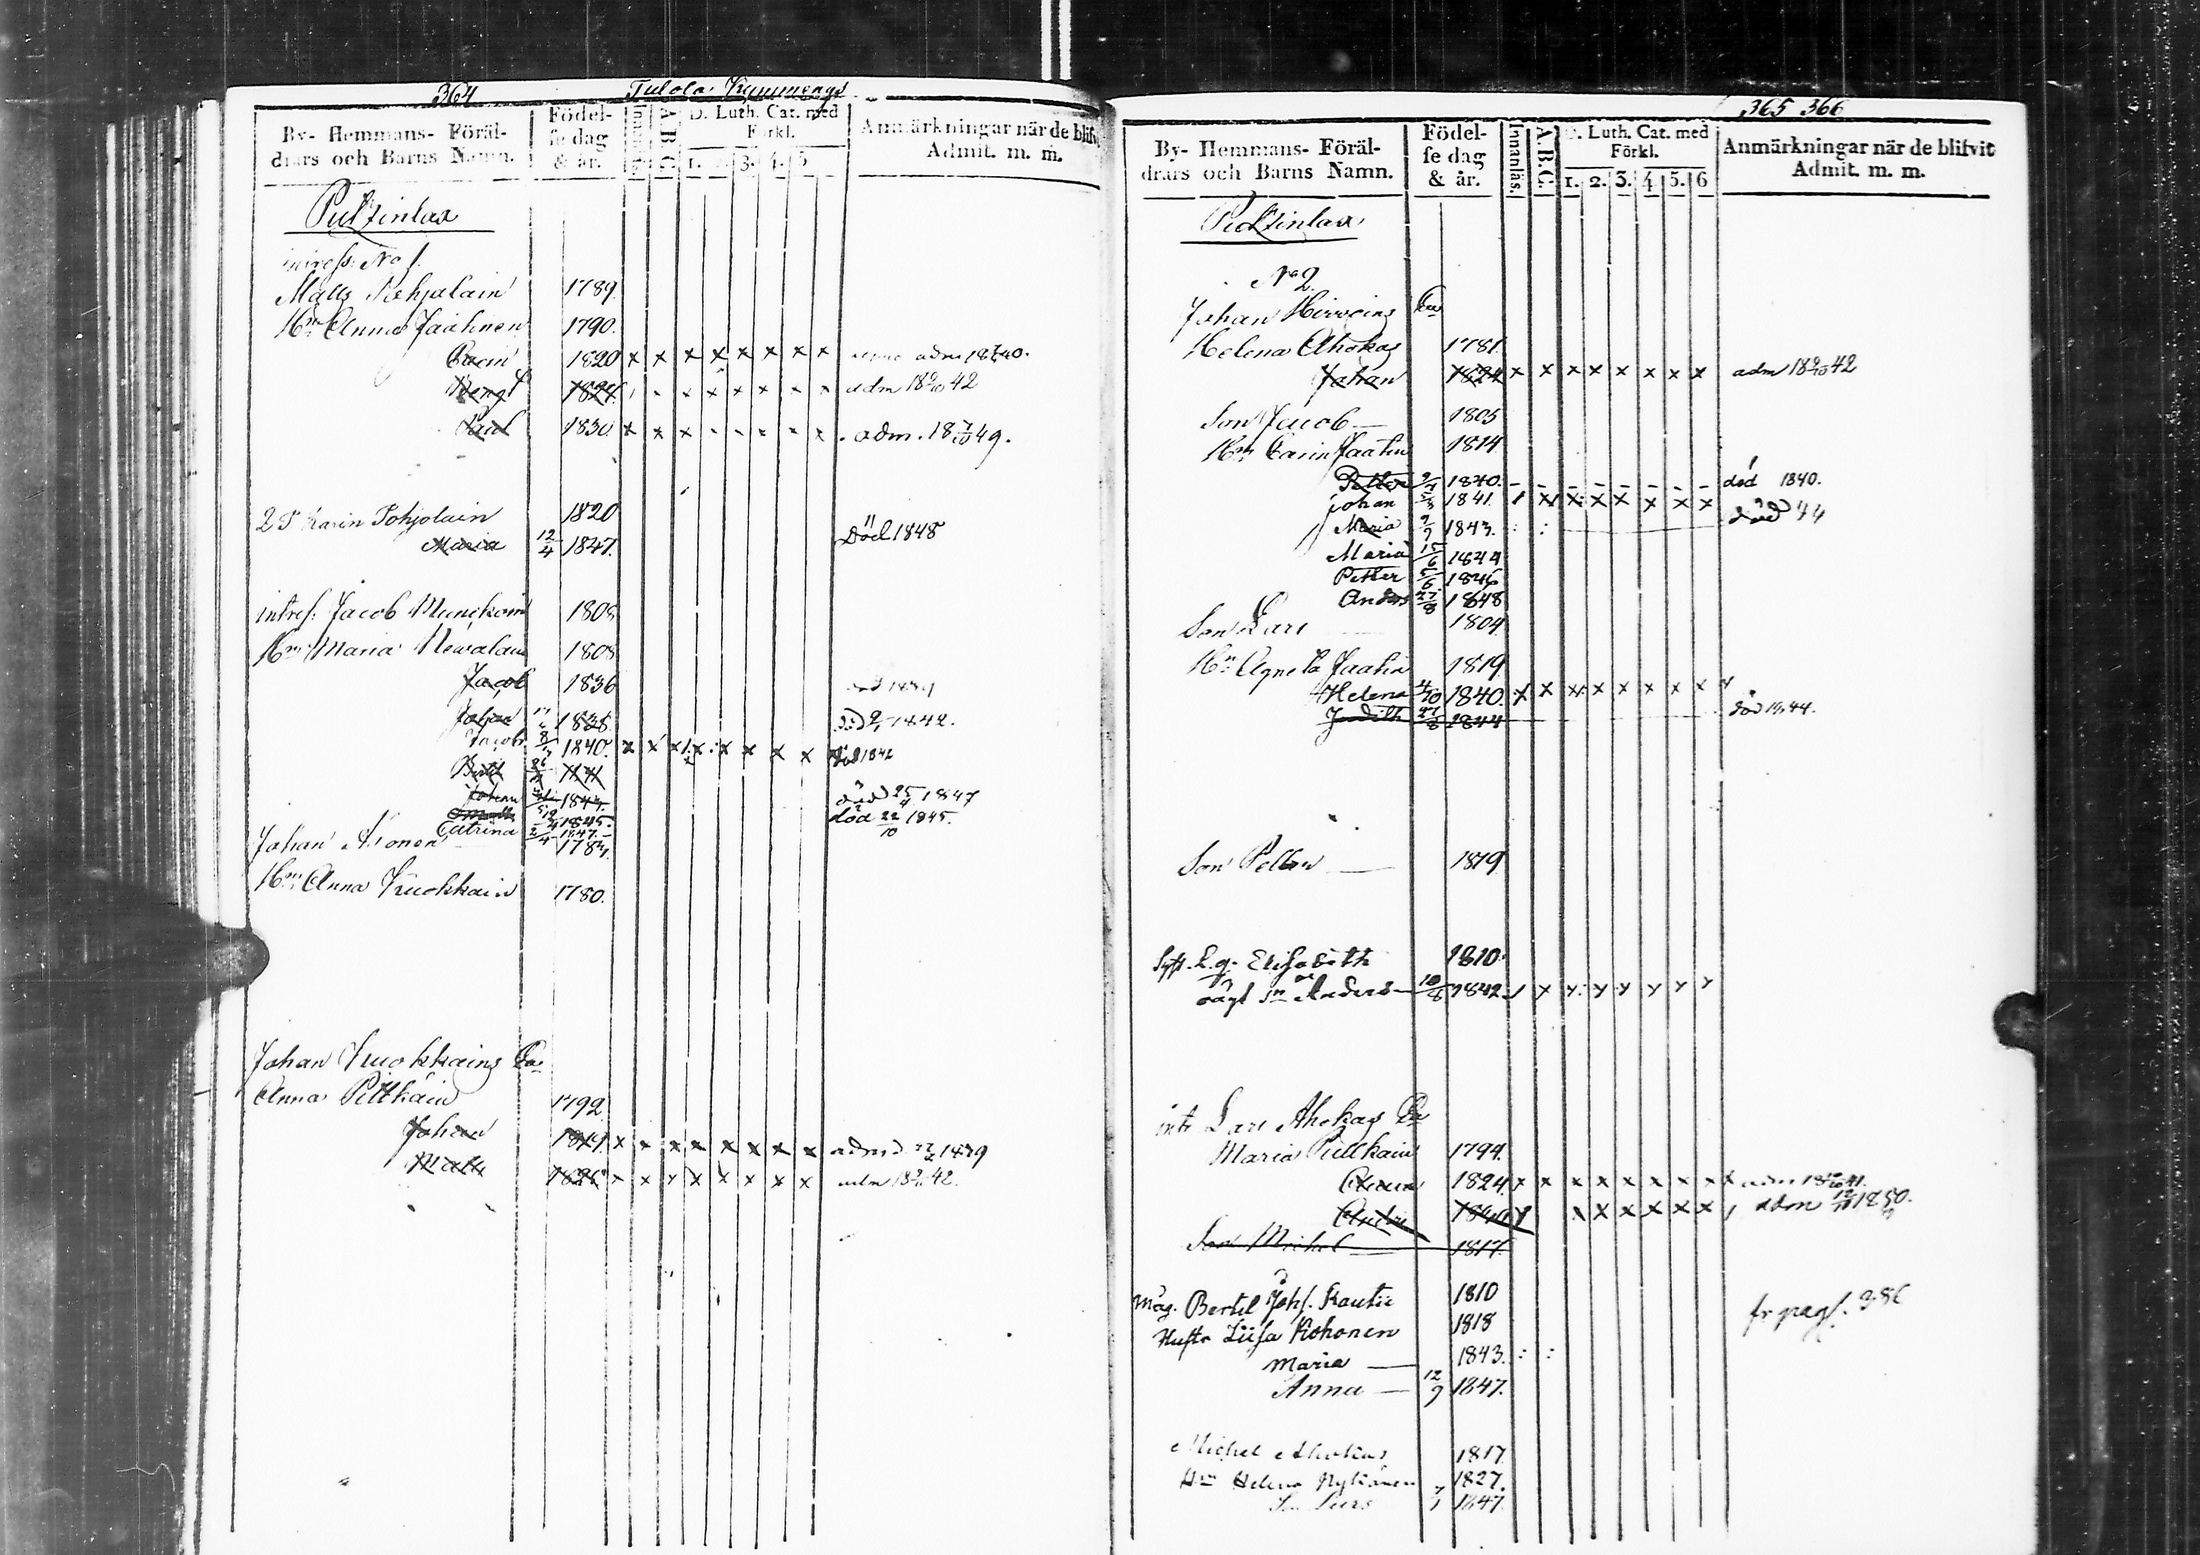 364 Tulola Kymmenegs
By- Hemmans- Föräl-
drars och Barns Namn.
Födel-
se dag
& år.
A.B.C.
D. Luth. Cat. med
Förkl.
1. 3. 4. 5
Anmärkningar när de blifv
Admit. m. m.
Pultinlax
intress. No 1.
Matts Pohjalain 1789.
Hu Anna Jaatinen 1790.
Carin 1820 x x x x x x x x adm 18 40.
Bengt 1824. x x x x x x adm 18 9/10 42
Paul 1830. x x x x adm. 18 7/10 49.
Karin Pohjolain 1820
Maria 12/4 1847. Död 1848
intres. Jacob Munckoin 1808
Hu Maria Newalain 1808
Jacob 1836
Johan 1838. 1842.
Jacob 1840. x x x x x x x x död 1842
Bertil
Johan 1843. död 25/4 1847
1845. död 22/10 1845.
Catrina 2/4 1847.
Johan 1783.
Hu Anna Kuokkain 1780.
Johan Kuokkains Ea
Anna Pitkäin 1792
Johan 1819. x x x x x x x x admd 1839
Matts 1825 x x x x x x x adm 18 42.
365 366
By- Hemmans- Föräl-
drars och Barns Namn.
Födel-
se dag
& år.
Innanläs.
A.B.C.
D. Luth. Cat. med
Förkl.
1. 2. 3. 4 5. 6
Anmärkningar när de blifvit
Admit. m. m.
Pultinlax
No 2.
Johan Hirvoins Ea
Helena Ahokas 1781.
Johan 1824 x x x x x x x x adm 18 9/10 42
Son Jacob 1805
Hu Carin Jaatin 1814
Petter 1840. död 1840.
Johan 1841. x x x x x x x
Maria 1843. död 44
Maria 15/6 1844
Petter 5/6 1846
Anders 27/8 1848
Son Lars 1804
Hu Agneta Jaatin 1819.
Helena 4/10 1840. x x x x x x x x
Judith 27/8 1844 död 44.
Son Petter 1819.
Syst. L.g. Elisabeth 1810.
oägt sn Anders 10/8 1842.
intr Lars Ahokas Ea
Maria Pitkain 1794.
1824. x x x x x x x x adm 18 41.
x x x x x x adm 12/10 1850.
Son Michel 1817.
Måg. Bertil Joh. Kautia 1810 fr pag. 386
Hustr Liisa Kohonen 1818
Maria 1843.
Anna 12/9 1847.
Michel Ahokas 1817
Hu Helena Nykänen 1827.
Lars 1847.